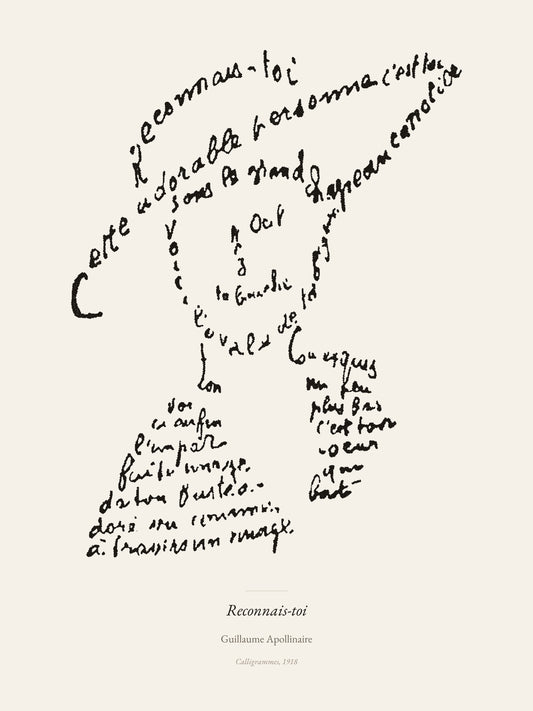 Reconnais-toi
Cette adorable personne c'est toi
sous le grand chapeau canotier
Oeil
Nez
la bouche
Voici l'ovale de ta figure
Ton cou exquis
Voici enfin
l'impar
faite image
de ton buste
adoré vu comme
à travers un nuage
un peu
plus bas
c'est ton
coeur
qui
bat
Reconnais-toi
Guillaume Apollinaire
Calligrammes, 1918